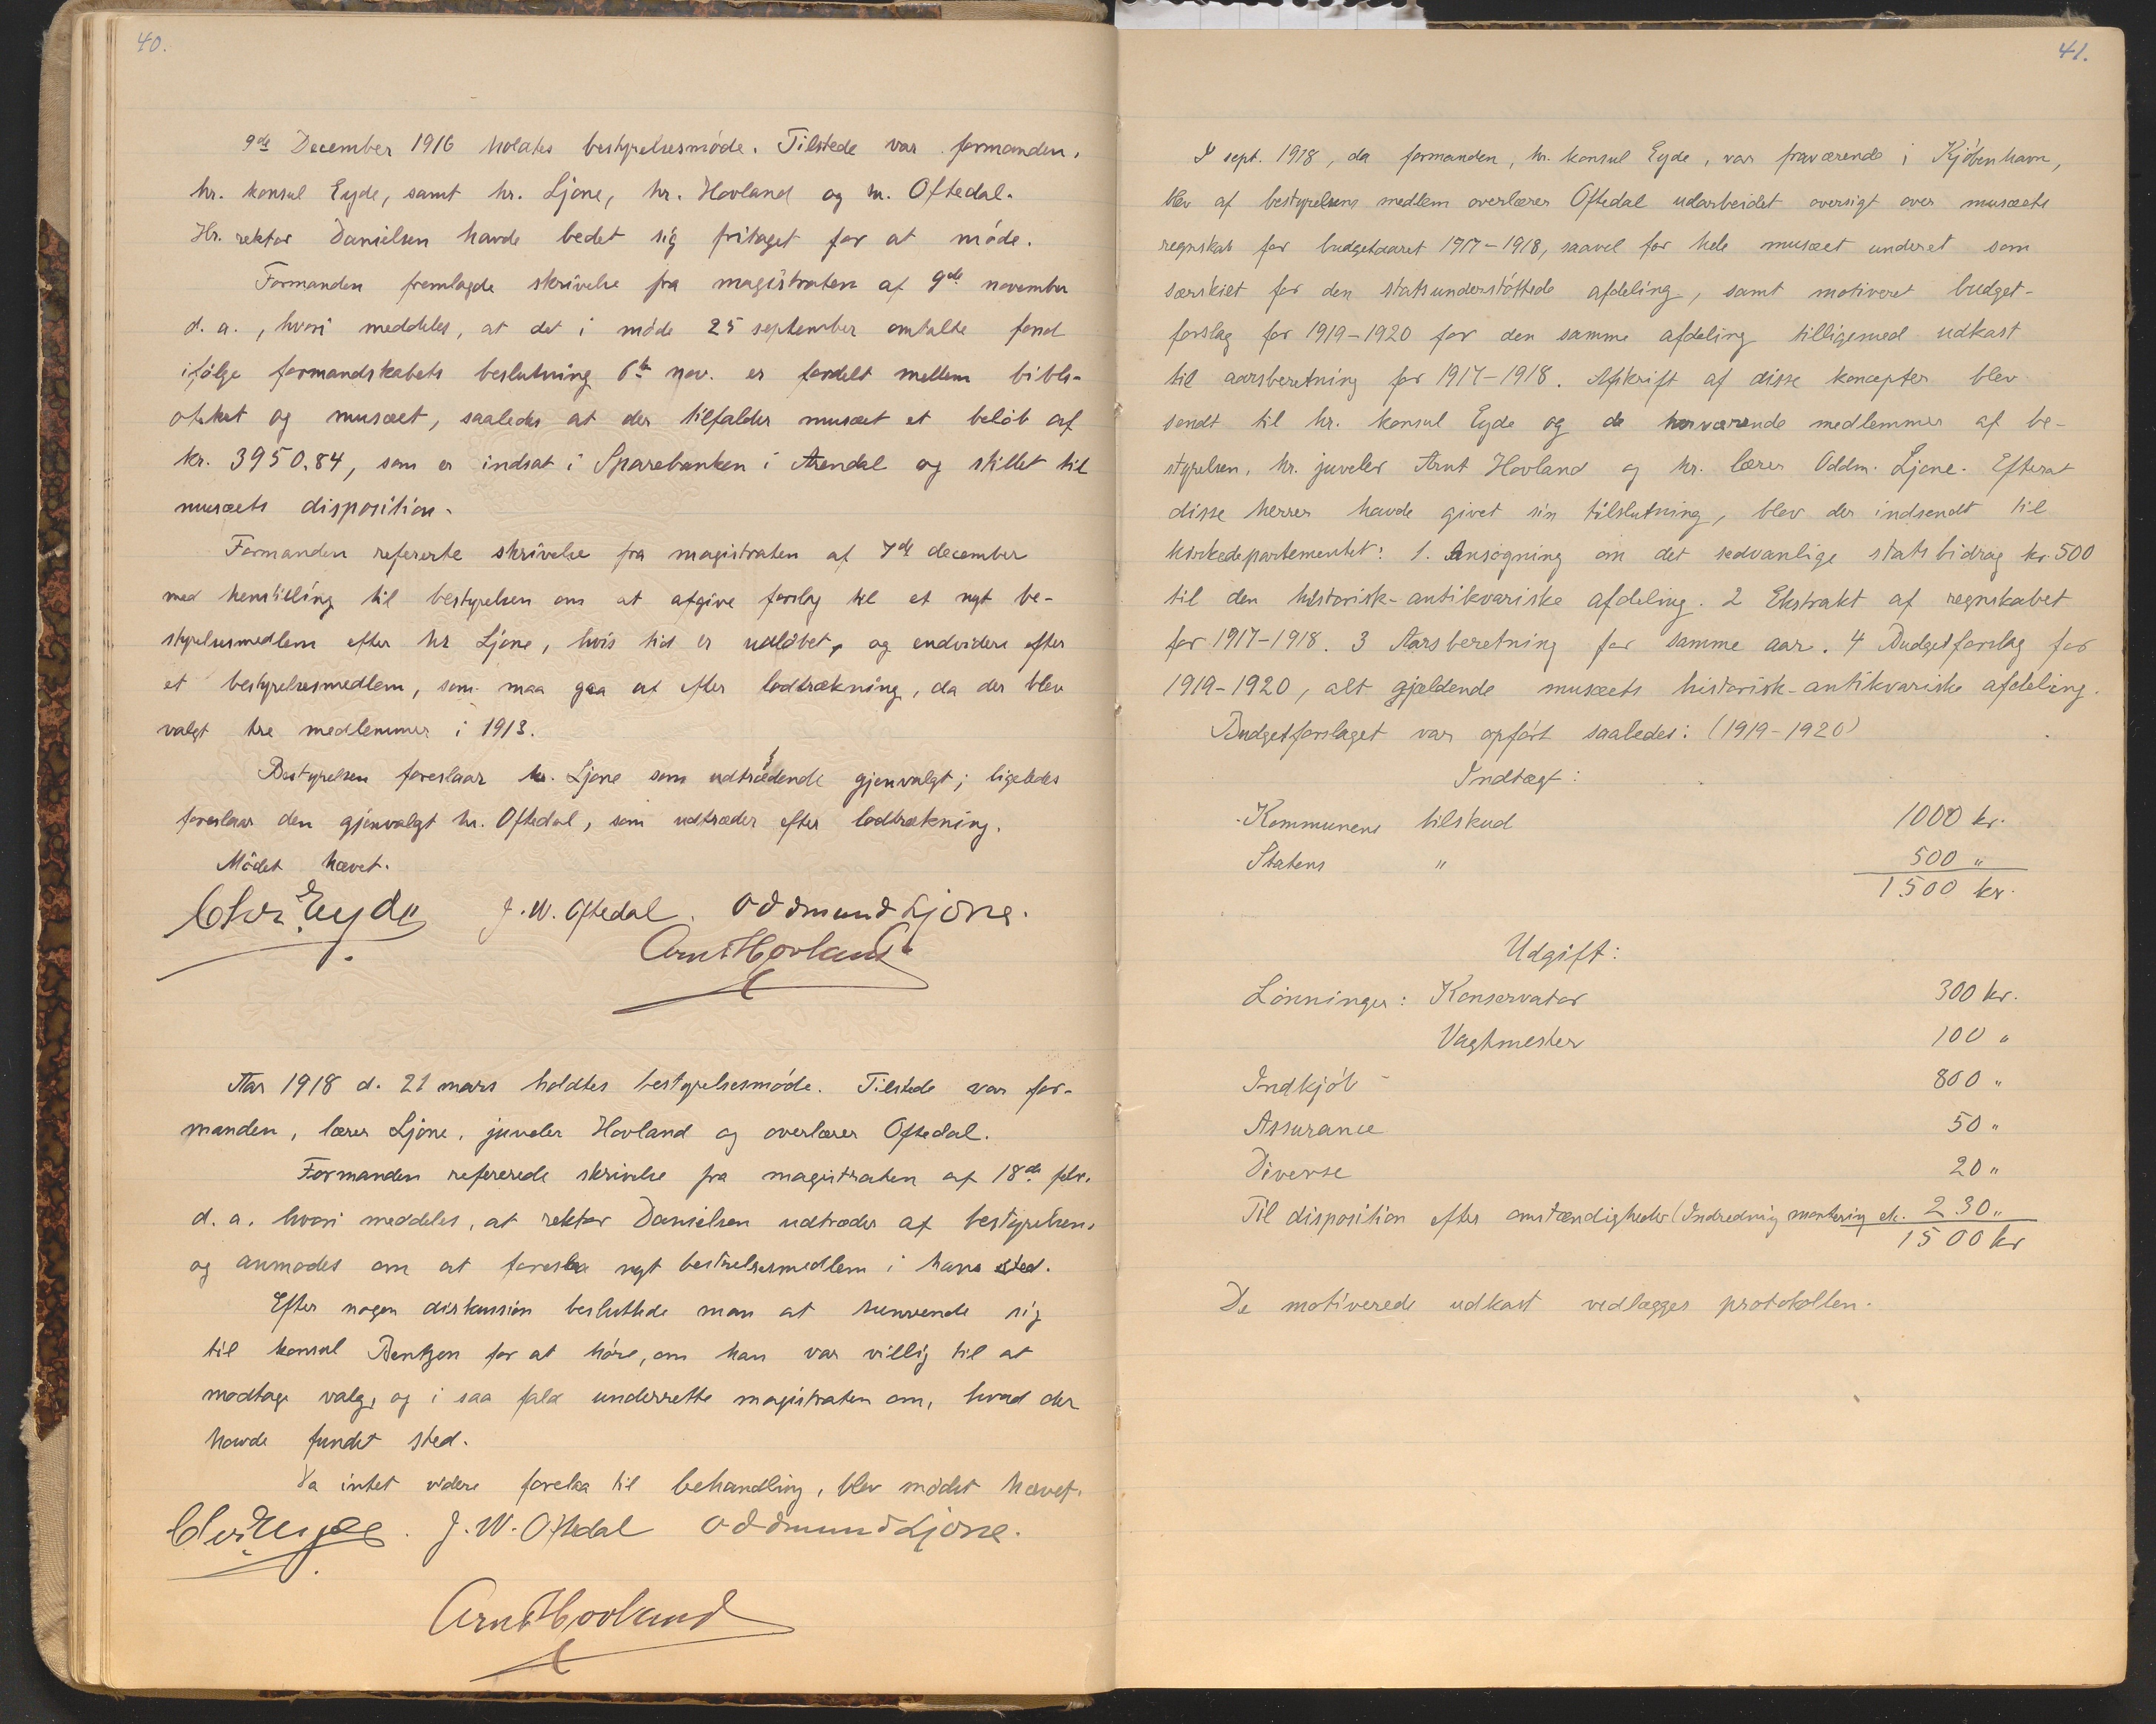 40.
9de December 1916 holdtes bestyrelsesmøde. Tilstede var formanden,
hr. konsul Eyde, samt hr. Ljone, hr. Hovland og hr. Oftedal.
Hr. rektor Danielsen havde bedet sig fritaget for at møde.
Formanden fremlagde skrivelse fra magistraten af 9de november
d. a., hvori meddeles, at det i møde 25 september omtalte fond
ifølge formandskabets beslutning 6te nov. er fordelt mellem bibli-
oteket og musæet, saaledes at der tilfalder musæet et beløb af
kr. 3950.84, som er indsat i Sparebanken i Arendal og stillet til
musæets disposition.
Formanden refererte skrivelse fra magistraten af 7de december
med henstilling til bestyrelsen om at afgive forslag til et nyt be-
styrelsesmedlem efter hr Ljone, hvis tid er udløbet, og endvidere efter
et bestyrelsesmedlem, som maa gaa ut efter lodtrækning, da der blev
valgt tre medlemmer i 1913.
Bestyrelsen foreslaar hr. Ljone som udtrædende gjenvalgt; ligeledes
foreslaar den gjenvalgt hr. Oftedal, som udtræder efter lodtrækning.
Mødet hævet.
Chr. Eyde J. W. Oftedal. Oddmund Ljone.
Arnt Hovland
Aar 1918 d. 21 mars holdtes bestyrelsesmøde. Tilstede var for-
manden, lærer Ljone, juveler Hovland og overlærer Oftedal.
Formanden refererede skrivelse fra magistraten af 18de febr.
d. a. hvori meddeles, at rektor Danielsen udtræder af bestyrelsen,
og anmodes om at foreslaa nyt bestrelsesmedlem i hans sted.
Efter nogen diskussion besluttede man at henvende sig
til konsul Bentzon for at høre, om han var villig til at
modtage valg, og i saa fald underrette magistraten om, hvad der
havde fundet sted.
Da intet videre forelaa til behandling, blev mødet hævet.
Chr. Eyde. J. W. Oftedal Oddmund Ljone.
Arnt Hovland
41.
I sept. 1918, da formanden, hr. konsul Eyde, var fraværende i Kjøbenhavn,
blev af bestyrelsens medlem overlærer Oftedal udarbeidet oversigt over musæets
regnskab for budgetaaret 1917-1918, saavel for hele musæet underet som
særskilt for den statsunderstøttede afdeling, samt motiveret budget-
forslag for 1919-1920 for den samme afdeling tilligemed udkast
til aarsberetning for 1917-1918. Afskrift af disse koncepter blev
sendt til hr. konsul Eyde og de herværende medlemmer af be-
styrelsen, hr. juveler Arnt Hovland og hr. lærer Oddm. Ljone. Efterat
disse herrer havde givet sin tilslutning, blev der indsendt til
kirkedepartementet: 1. Ansøgning om det sedvanlige statsbidrag kr. 500
til den historisk-antikvariske afdeling. 2 Ekstrakt af regnskabet
for 1917-1918. 3 Aarsberetning for samme aar. 4 Budgetforslag for
1919-1920, alt gjældende musæets historisk-antikvariske afdeling.
Budgetforslaget var opført saaledes: (1919-1920)
Indtægt:
Kommunens tilskud 1000 kr.
Statens " 500 "
1500 kr.
Udgift:
Lønninger: Konservator 300 kr.
Vagtmester 100 "
Indkjøb 800 "
Assurance 50 "
Diverse 20 "
Til disposition efter omstændigheder (Indredning montering etc. 230 "
1500 kr
De motiverede udkast vedlægges protokollen.